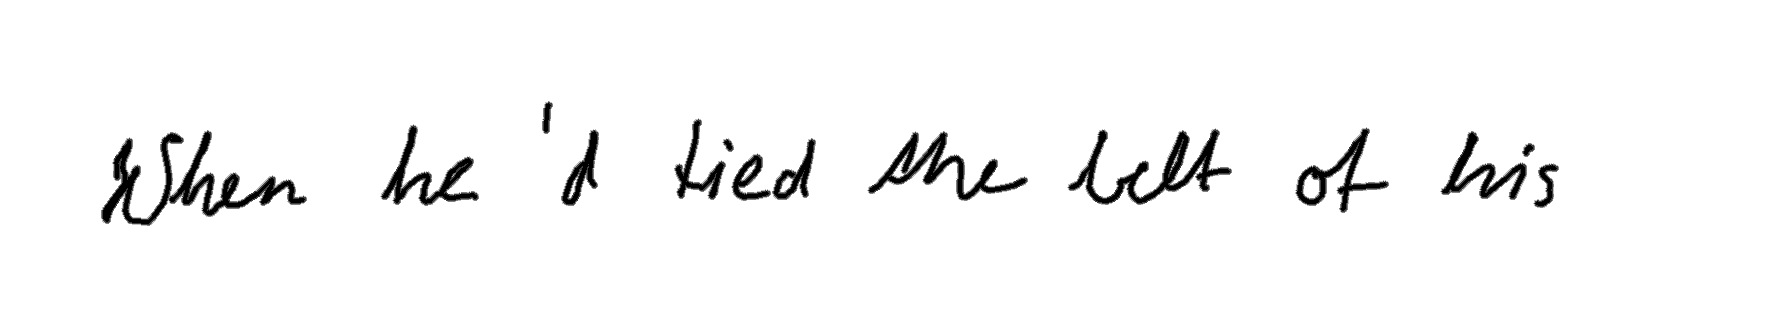 When he 'd tied the belt of his